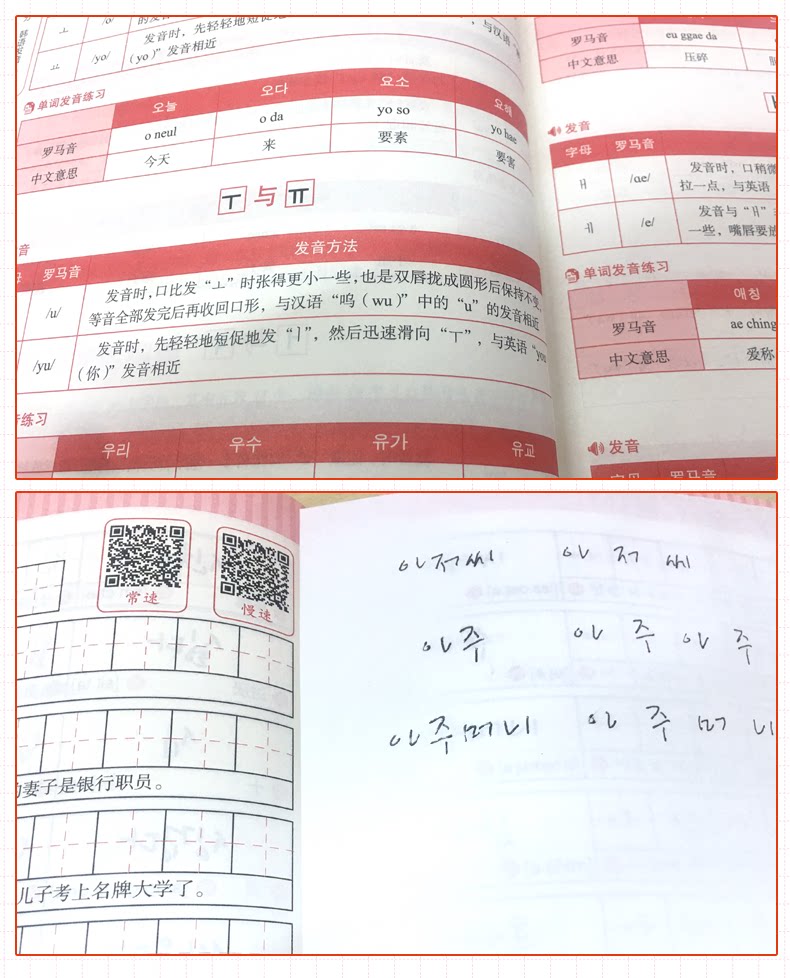 ㅗ /o/
发音时，先轻轻地短促地
ㅛ /yo/ (yo)”发音相近
，与汉语“
单词发音练习
오늘 오다 요소 요해
罗马音 o neul o da yo so yo hae
中文意思 今天 来 要素 要害
ㅜ与ㅠ
音
发音方法
罗马音
/u/ 发音时，口比发“ㅗ”时张得更小一些，也是双唇拢成圆形后保持不变，
等音全部发完后再收回口形，与汉语“呜（wu）”中的“u”的发音相近
/yu/ 发音时，先轻轻地短促地发“ㅣ”，然后迅速滑向“ㅜ”，与英语“you
（你）”发音相近
音练习
우리 우수 유가 유교
罗马音 eu ggae da
中文意思 压碎
发音
字母 罗马音
ㅐ /ae/ 发音时，口稍微
拉一点，与英语
ㅔ /e/ 发音与“ㅐ”
一些，嘴唇要放
单词发音练习
애칭
罗马音 ae ching
中文意思 爱称
发音
字母 罗马音
常速
慢速
妻子是银行职员。
儿子考上名牌大学了。
아저씨 아 저 씨
아주 아 주 아 주
아주머니 아 주 머 니